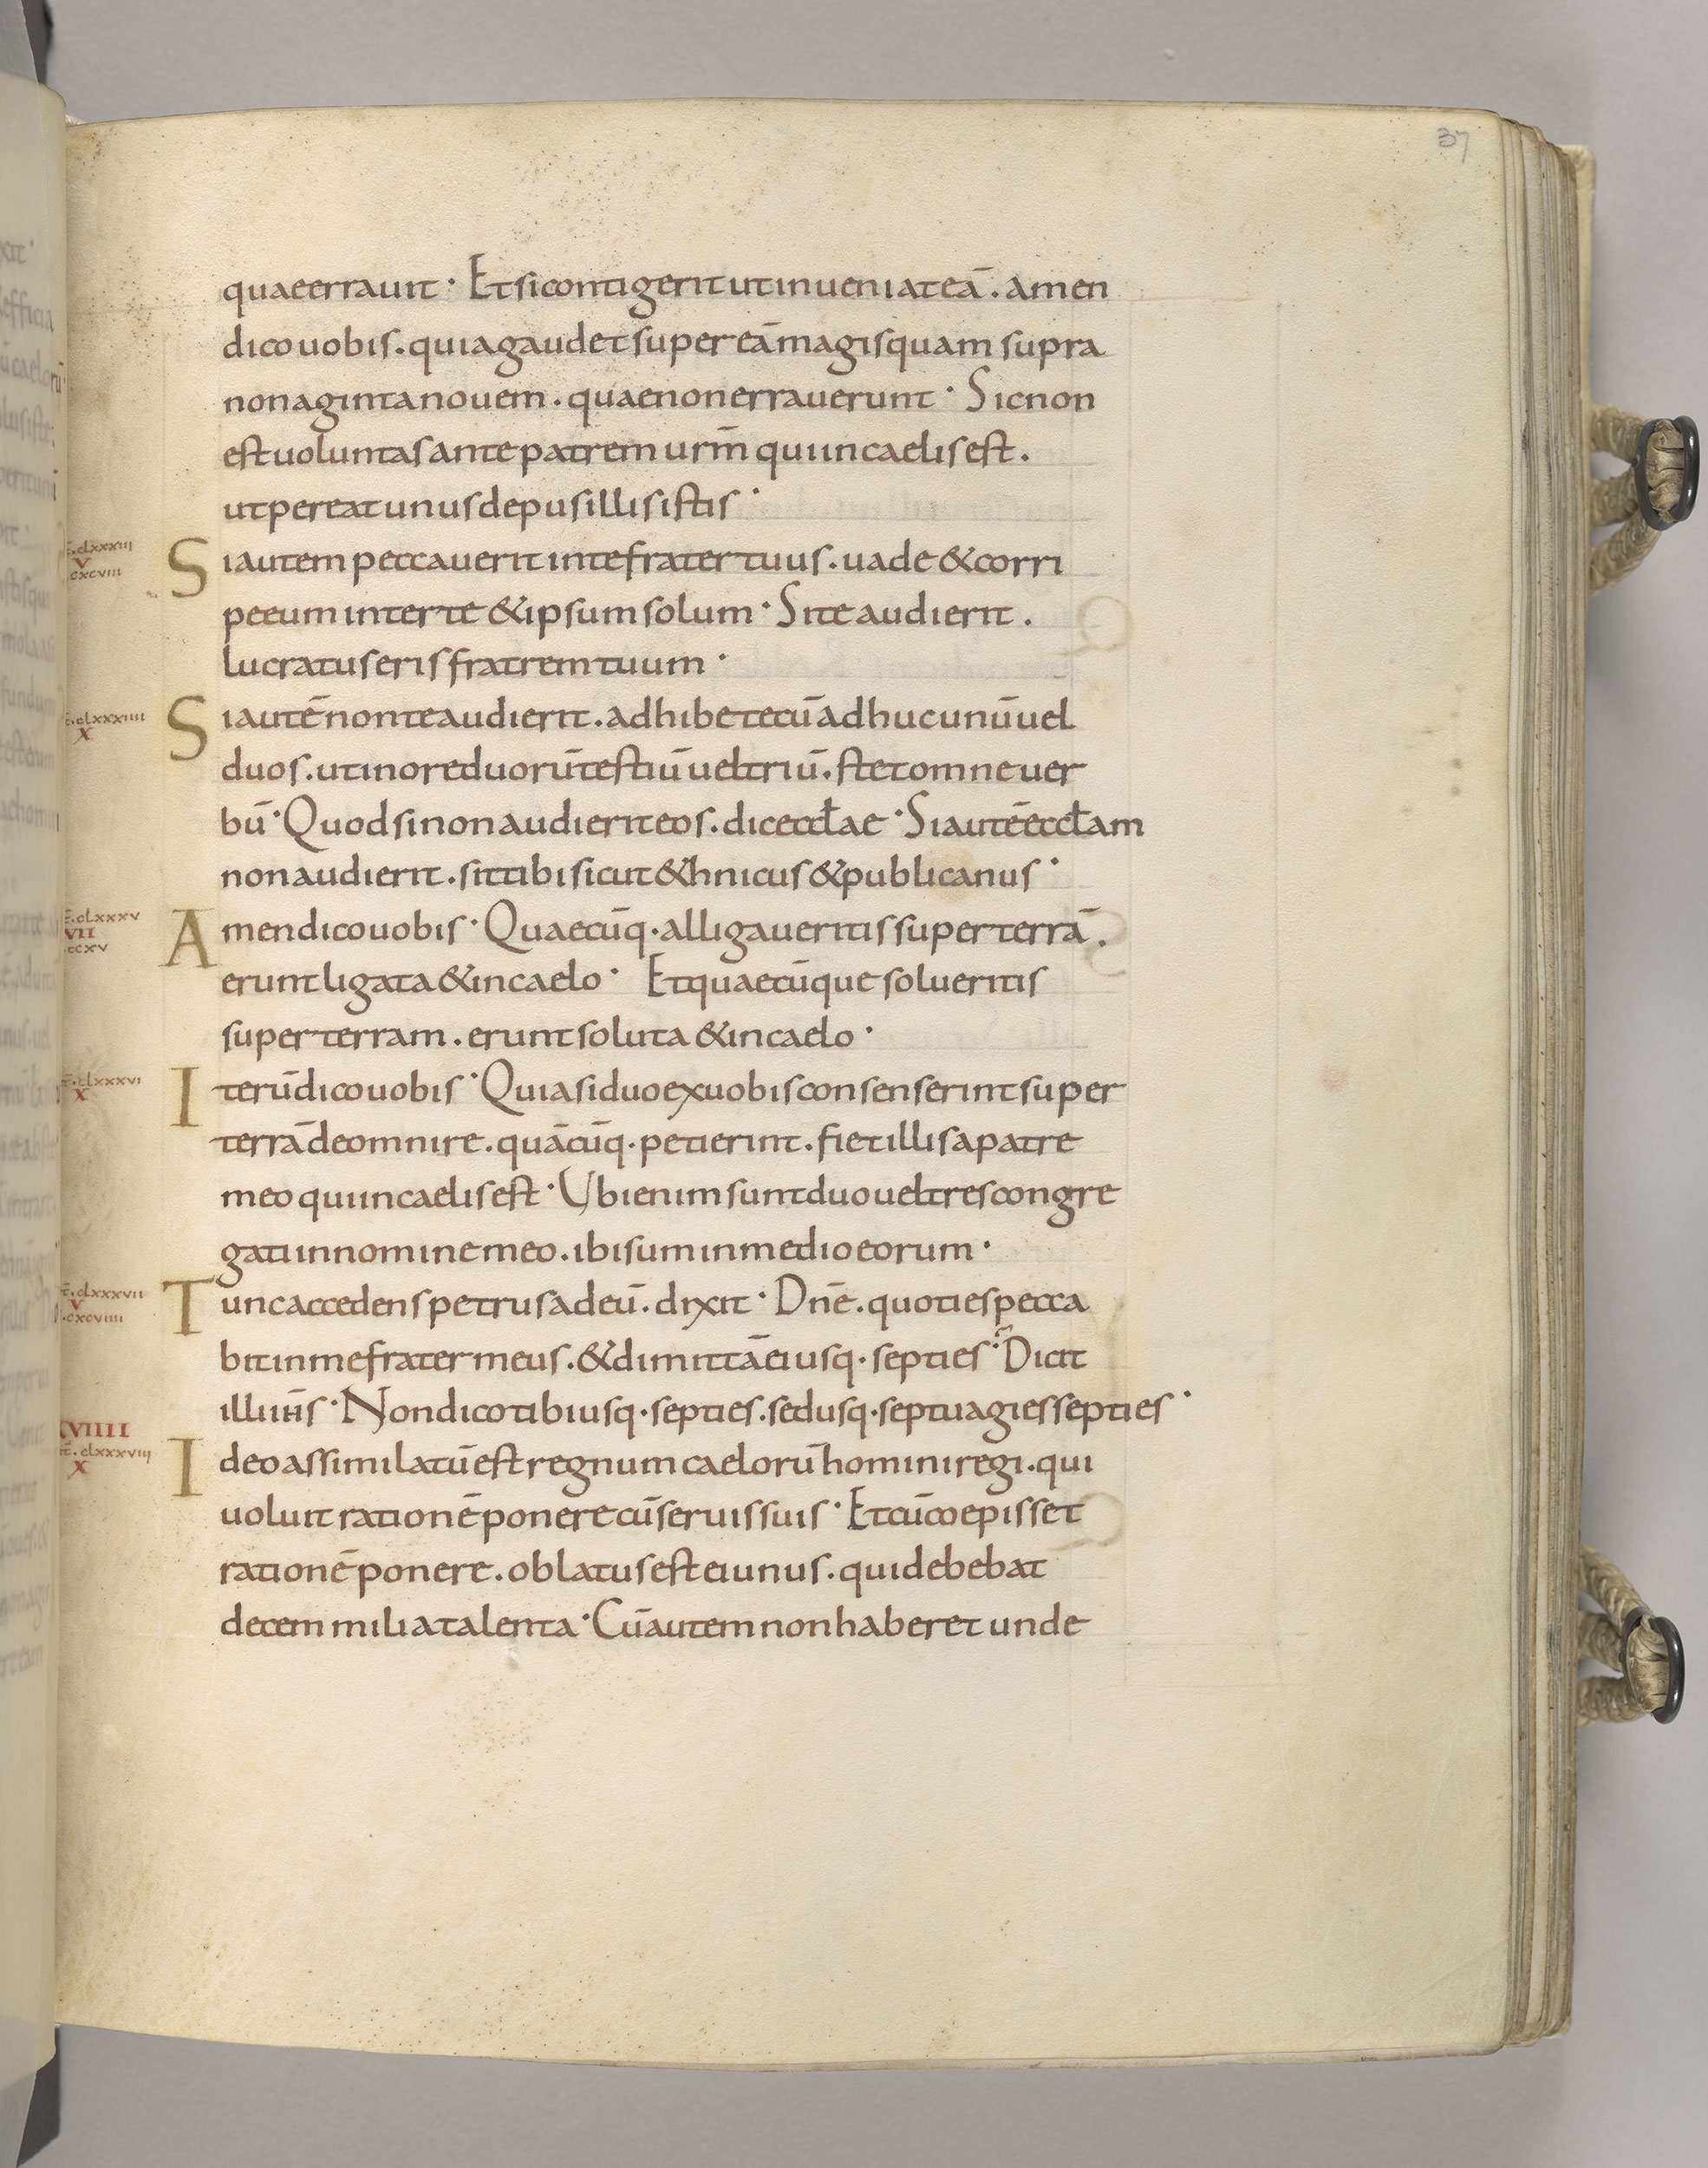 37
quae erravit · Et si contigerit ut inveniat eā . amen
dico vobis . quia gaudet super eā magis quam supra
nonaginta novem . quae non erraverunt · Sic non
est voluntas ante patrem urm̄ qui in caelis est .
ut pereat unus de pusillis istis ·
.clxxxiii
V
cxcviii
Si autem peccaverit in te frater tuus . vade & corri
pe eum inter te & ipsum solum · Si te audierit .
lucratus eris fratrem tuum ·
.clxxxiiii
X
Si autē non te audierit . adhibe tecū adhuc unū vel
duos . ut in ore duorū testiū vel triū . stet omne ver
bū · Quod si non audierit eos . dic eccłae · Si autē eccłam
non audierit . sit tibi sicut &hnicus & publicanus ·
.clxxxv
VII
ccxv
Amen dico vobis · Quaecūq· alligaveritis super terrā .
erunt ligata & in caelo · Et quaecūque solveritis
super terram . erunt soluta & in caelo ·
.clxxxvi
X
Iterū dico vobis · Quia si duo ex vobis consenserint super
terrā de omni re . quācūq· petierint . fiet illis a patre
meo qui in caelis est · Ubi enim sunt duo vel tres congre
gati in nomine meo . ibi sum in medio eorum ·
.clxxxvii
V
.cxcviiii
Tunc accedens petrus ad eū . dixit · Dn̄e . quoties pecca
bit in me frater meus . & dimittā ei usq· septies · Dicit
illi ih̄s · Non dico tibi usq· septies . sed usq· septuagies septies ·
XVIIII
.clxxxviii
X
Ideo assimilatū est regnum caelorū homini regi . qui
voluit rationē ponere cū servis suis · Et cū coepisset
rationē ponere . oblatus est ei unus . qui debebat
decem milia talenta · Cū autem non haberet unde